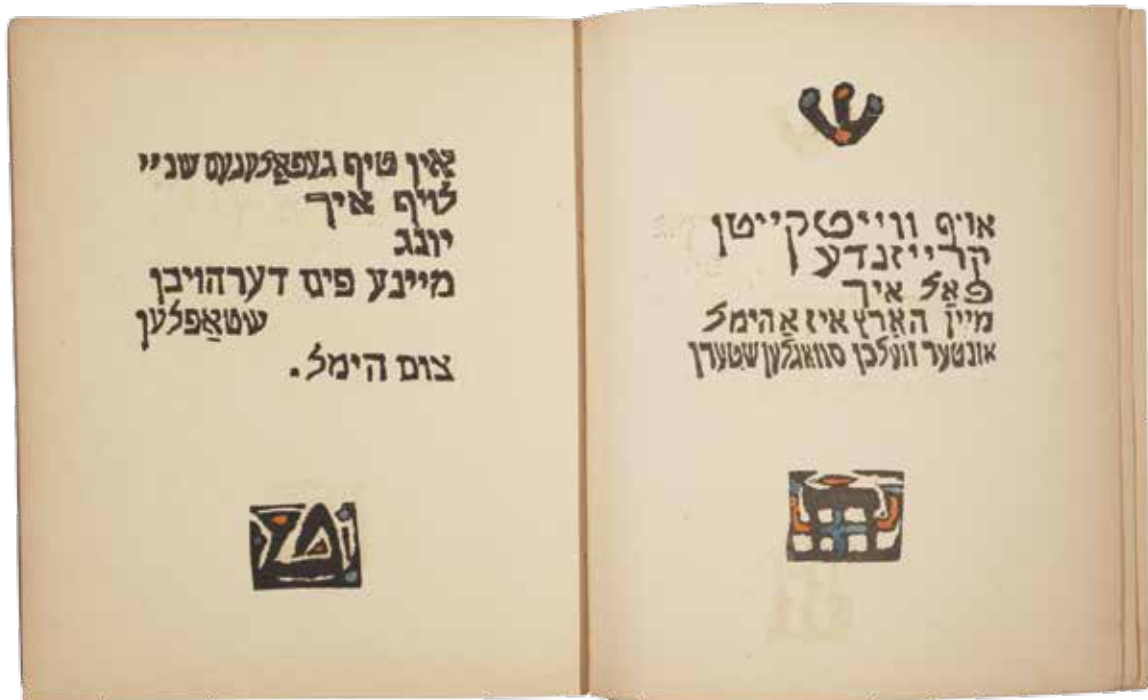 אויף ווייטקייטן
קרייזנדע
פאַל איך
מיין האַרץ איז אַ הימל
אונטער וועלכן סוואגלען שטערן
אין טיף געפאַלענעם שניי
לויף איך
יונג
מיינע פיס דערהויבן
שטאַפלען
צום הימל.